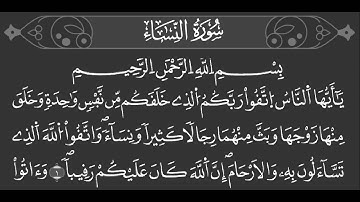 سُورَةُ النِّسَاءِ
بِسْمِ اِللَّهِ اِلرَّحْمَٰنِ اِلرَّحِيمِ
يَٰٓأَيُّهَا اَلنَّاسُ اُتَّقُوا۟ رَبَّكُمُ اُلَّذِے خَلَقَكُم مِّن نَّفْسٍ وَٰحِدَةٍ وَخَلَقَ
مِنْهَا زَوْجَهَا وَبَثَّ مِنْهُمَا رِجَالًا كَثِيرًا وَنِسَآءً وَاتَّقُوا۟ اُللَّهَ اَلَّذِے
تَسَّآءَلُونَ بِهِۦ وَالْأَرْحَامَ إِنَّ اَللَّهَ كَانَ عَلَيْكُمْ رَقِيبًا ۝ وَءَاتُوا۟